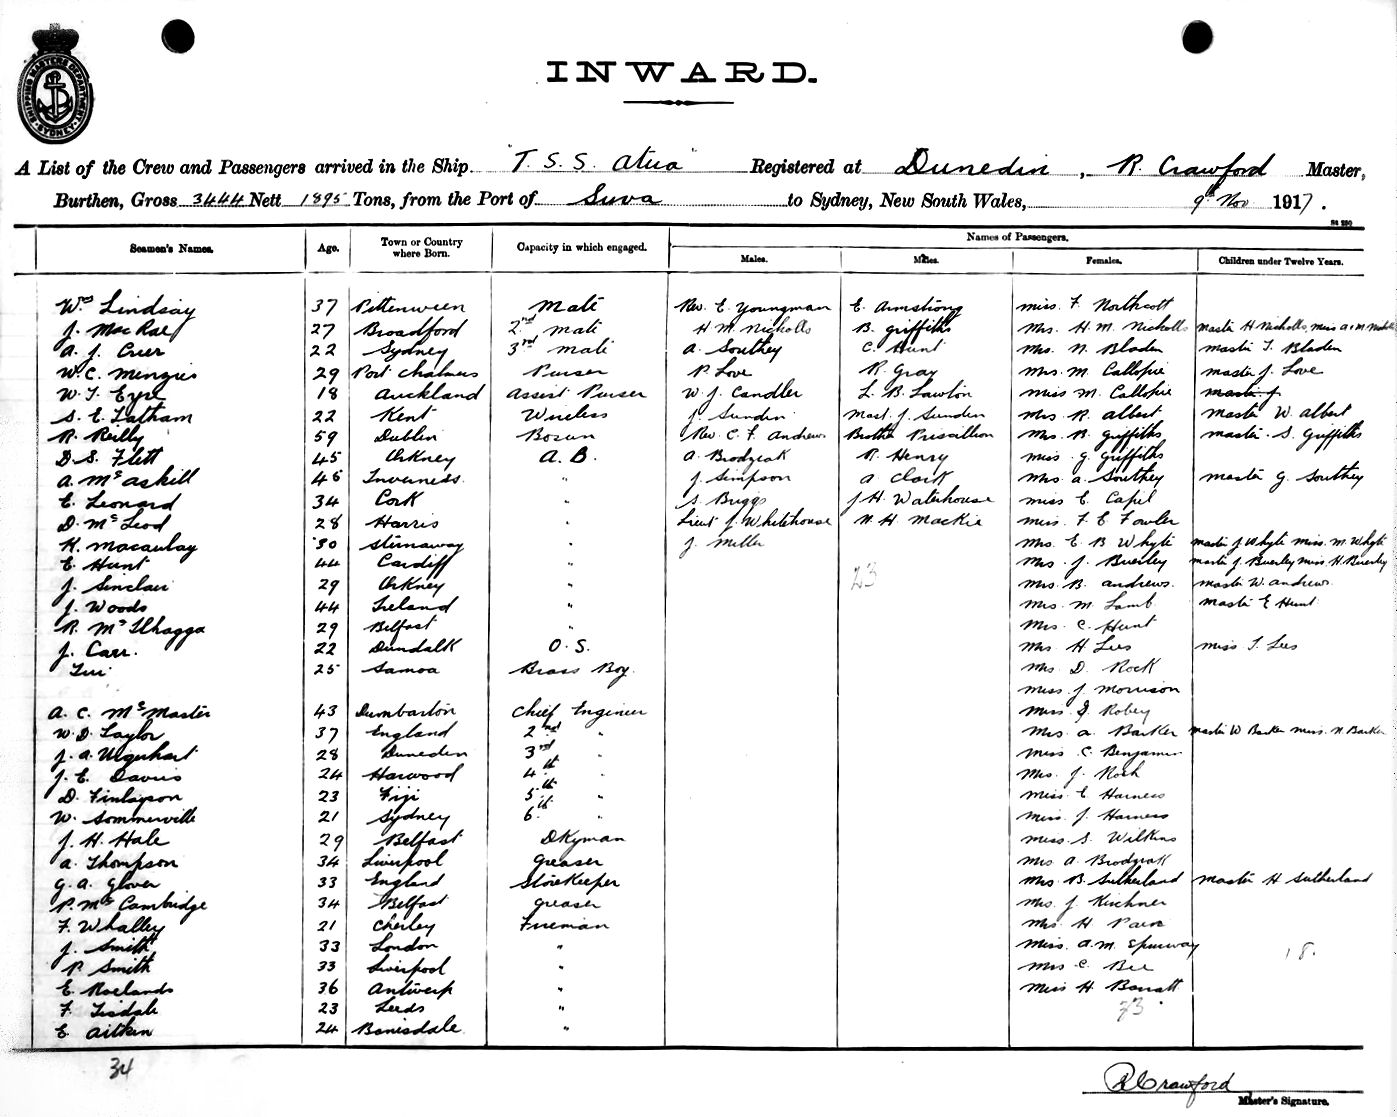 SHIPPING MASTERS DEPARTMENT
SYDNEY
INWARD.
A List of the Crew and Passengers arrived in the Ship "T. S. S. Atua" Registered at Dunedin, R. Crawford Master,
Burthen, Gross 3444 Nett 1895 Tons, from the Port of Suva to Sydney, New South Wales, 9th Nov 1917.
Names of Passengers.
Seamen's Names. Age. Town or Country where Born. Capacity in which engaged. Males. Males. Females. Children under Twelve Years.
Wm Lindsay 37 Pittenween Mate Rev. E. Youngman E. Armstrong Miss F. Northcott
J. MacRae 27 Broadford 2nd Mate H. M. Nicholls B. Griffiths Mrs. H. M. Nicholls Master H Nicholls, Miss A. M. Nicholls
A. J. Crier 22 Sydney 3rd Mate A. Southey C. Hunt Mrs. N. Bladen Master T. Bladen
W. C. Menzies 29 Port Chalmers Purser P. Love R. Gray Mrs. M. Callopie Master J. Love
W. T. Eyre 18 Auckland Assist Purser W. J. Candler L. B. Lawton Miss M. Callopie Master J
S. E. Latham 22 Kent Wireless J. Sunden Mast. J. Sunden Mrs. R. Albert Master W. Albert
R. Reilly 59 Dublin Bosun Rev. C. F. Andrews Brother Priscillian Mrs. B. Griffiths Master. S. Griffiths
D. S. Flett 45 Orkney A. B. A. Brodziak R. Henry Miss G. Griffiths
A. McAskill 46 Inverness " J. Simpson A Clark Mrs A. Southey Master G. Southey
E. Leonard 34 Cork " S. Briggs J. H. Waterhouse Miss E. Capel
D. McLeod 28 Harris " Lieut J. Whitehouse N. H. Mackie Miss. F. E. Fowler
K. Macaulay 30 Stornaway " J. Miller Mrs. E. B Whyte Master J Whyte Miss. M. Whyte
E. Hunt 44 Cardiff " Mrs. J. Buerley Master J. Buerley Miss. H. Buerley
J. Sinclair 29 Orkney " 23 Mrs. B. Andrews. Master W. Andrews.
J. Woods 44 Ireland " Mrs. M. Lamb Master E Hunt
R. McIlhagga 29 Belfast " Mrs. C. Hunt
J. Carr. 22 Dundalk O. S. Mrs H Lees Miss T. Lees
Tui 25 Samoa Brass Boy. Mrs. D. Rock
Miss. J. Morrison
A. C. McMaster 43 Dumbarton Chief Engineer Miss. J. Robey
W. D. Taylor 37 England 2nd " Mrs A. Barker Master W Barker Miss. N Barker
J. A. Urquhart 28 Dunedin 3rd Miss C. Benjamin
J. E. Davies 24 Harwood 4th " Mrs. J. Rosh
D. Finlayson 23 Fiji 5th " Miss. E Harness
W. Sommerville 21 Sydney 6th " Miss. J. Harness
J. H. Hale 29 Belfast DKyman Miss. S. Wilkins
A. Thompson 34 Liverpool Greaser Mrs A. Brodziak
G. A. Glover 33 England StoreKeeper Mrs. B. Sutherland Master H Sutherland
P. McCambridge 34 Belfast Greaser Mrs. J. Kirchner
F. Whalley 21 Chorley Fireman Mrs H
J. Smith 33 London " Miss. A. M. Spurway
P. Smith 33 Liverpool " Mrs C. Bee 18.
E. Roelands 36 Antwerp " Miss H Barratt
F. Tisdale 23 Leeds " 33.
E. Aitken 24 "
34
R Crawford
Master's Signature.